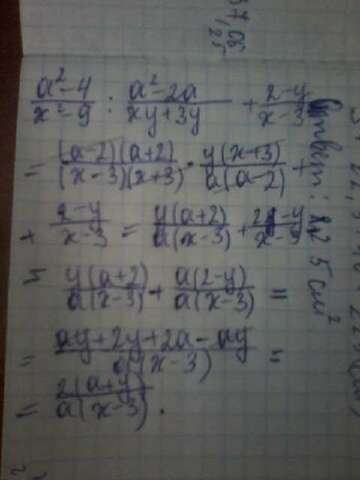 a²-4/x²-9 : a²-2a/xy+3y + 2-y/x-3
= (a-2)(a+2)/(x-3)(x+3) · y(x+3)/a(a-2) +
+ 2-y/x-3 = y(a+2)/a(x-3) + 2-y/x-3
y(a+2)/a(x-3) + a(2-y)/a(x-3) =
= ay+2y+2a-ay/a(x-3) =
= 2(a+y)/a(x-3).
Ответ: 25 см²